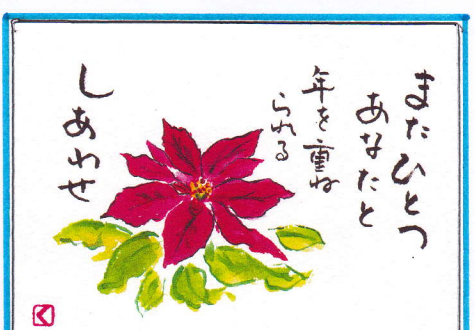 またひとつ
あなたと
年を重ね
られる
しあわせ
く